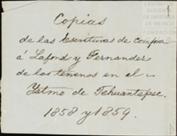 Copias
de las Escrituras de compra
á Laford y Fernandez
de los terrenos en el
Istmo de Tehuantepec.
1858 y 1859.